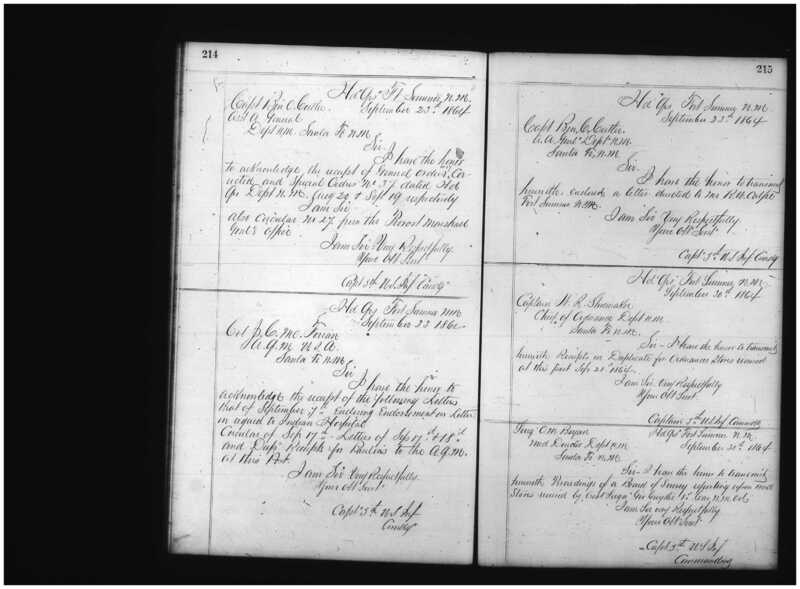 214
Hd Qrs Ft Sumner, N.M.
September 23d 1864
Capt Ben C. Cutler
Asst A. General
Dept N.M. Santa Fe N.M.
Sir
I have the honor
to acknowledge the receipt of General Orders
and Special Orders No 37 dated Hd
Qrs Dept N.M. Aug 20 & Sept 19 respectively
I am Sir
also Circular No 27 from the Provost Marshal
Genl's Office
I am Sir Very Respectfully
Your Obt Servt
Capt 5th U.S. Inf Comdg
Hd Qrs Fort Sumner N.M.
September 23 186
Col J. C. Mc Ferran
A.Q.M. U.S.A.
Santa Fe N.M.
Sir
I have the honor to
acknowledge the receipt of the following Letters
that of September 7th Enclosing Endorsement on Letter
in regard to Indian Hospital
Circular of Sep 17th Letters of Sep 17th & 18th
and Dup Receipts for to the A.Q.M.
at this Post.
I am Sir Very Respectfully
Your Obt Servt
Capt 5th U.S. Inf
Comdg
215
Hd Qrs Fort Sumner N.M.
September 23d 1864
Capt Ben. C. Cutler
A. A. Genl Dept N.M.
Santa Fe, N.M.
Sir
I have the honor to transmit
herewith enclosed a letter directed to me
Fort Sumner N.M.
I am Sir Very Respectfully
Your Obt Servt
Capt 5th U.S. Inf Comdg
Hd Qrs Fort Sumner N.M.
September 30th 1864
Captain W. R. Shoemaker
Chief of Ordnance Dept N.M.
Santa Fe N.M.
Sir I have the honor to transmit
herewith Receipts in Duplicate for Ordnance Stores received
at this post Sep 21st 1864.
I am Sir Very Respectfully
Your Obt Servt
Captain 5th U.S. Inf Commdg
Hd Qrs Fort Sumner N.M.
September 30th 1864
Surg O. M. Bryan
Med Director Dept N.M.
Santa Fe N.M.
Sir I have the honor to transmit
herewith Proceedings of a Board of Survey reporting upon Med
Stores received by Asst Surgn 1st Cav N.M. Vols
I am Sir very Respectfully
Your Obt Servt
Capt 5th U.S. Inf
Commanding